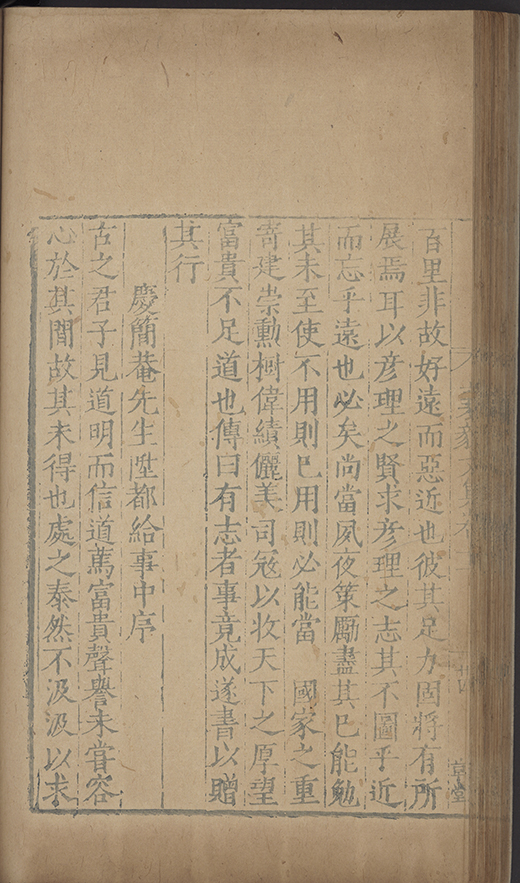 百里非故好遠而惡近也彼其足力固將有所
展焉耳以彦理之賢求彦理之志其不圖乎近
而忘乎遠也必矣尚當夙夜策勵盡其已能勉
其未至使不用則已用則必能當　國家之重
寄建崇勳樹偉績儷美司冦以收天下之厚望
富貴不足道也傳曰有志者事竟成遂書以贈
其行
慶簡菴先生陞都給事中序
古之君子見道明而信道篤富貴聲譽未嘗容
心於其間故其未得也處之泰然不汲汲以求